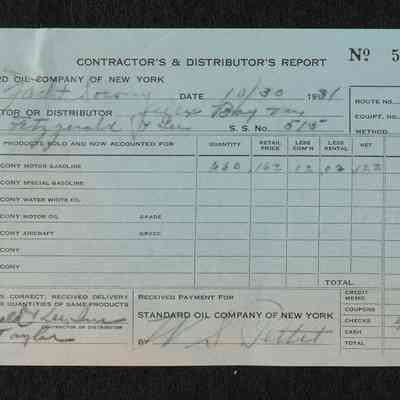 CONTRACTOR'S & DISTRIBUTOR'S REPORT Nº 5
RD OIL COMPANY OF NEW YORK
DATE 10/30 1931
ROUTE NO.
TOR OR DISTRIBUTOR
EQUIPT. NO.
Fitzgerald & Lee S. S. No. 515
METHOD
PRODUCTS SOLD AND NOW ACCOUNTED FOR QUANTITY RETAIL PRICE LESS COM'N LESS RENTAL NET
CONY MOTOR GASOLINE 660 162 12 02 122
CONY SPECIAL GASOLINE
CONY WATER WHITE OIL
CONY MOTOR OIL GRADE
CONY AIRCRAFT GRADE
CONY
CONY
TOTAL
S CORRECT, RECEIVED DELIVERY
QUANTITIES OF SAME PRODUCTS
RECEIVED PAYMENT FOR
STANDARD OIL COMPANY OF NEW YORK
CONTRACTOR OR DISTRIBUTOR
Taylor
BY W S Pettet
CREDIT MEMO.
COUPONS
CHECKS
CASH
TOTAL